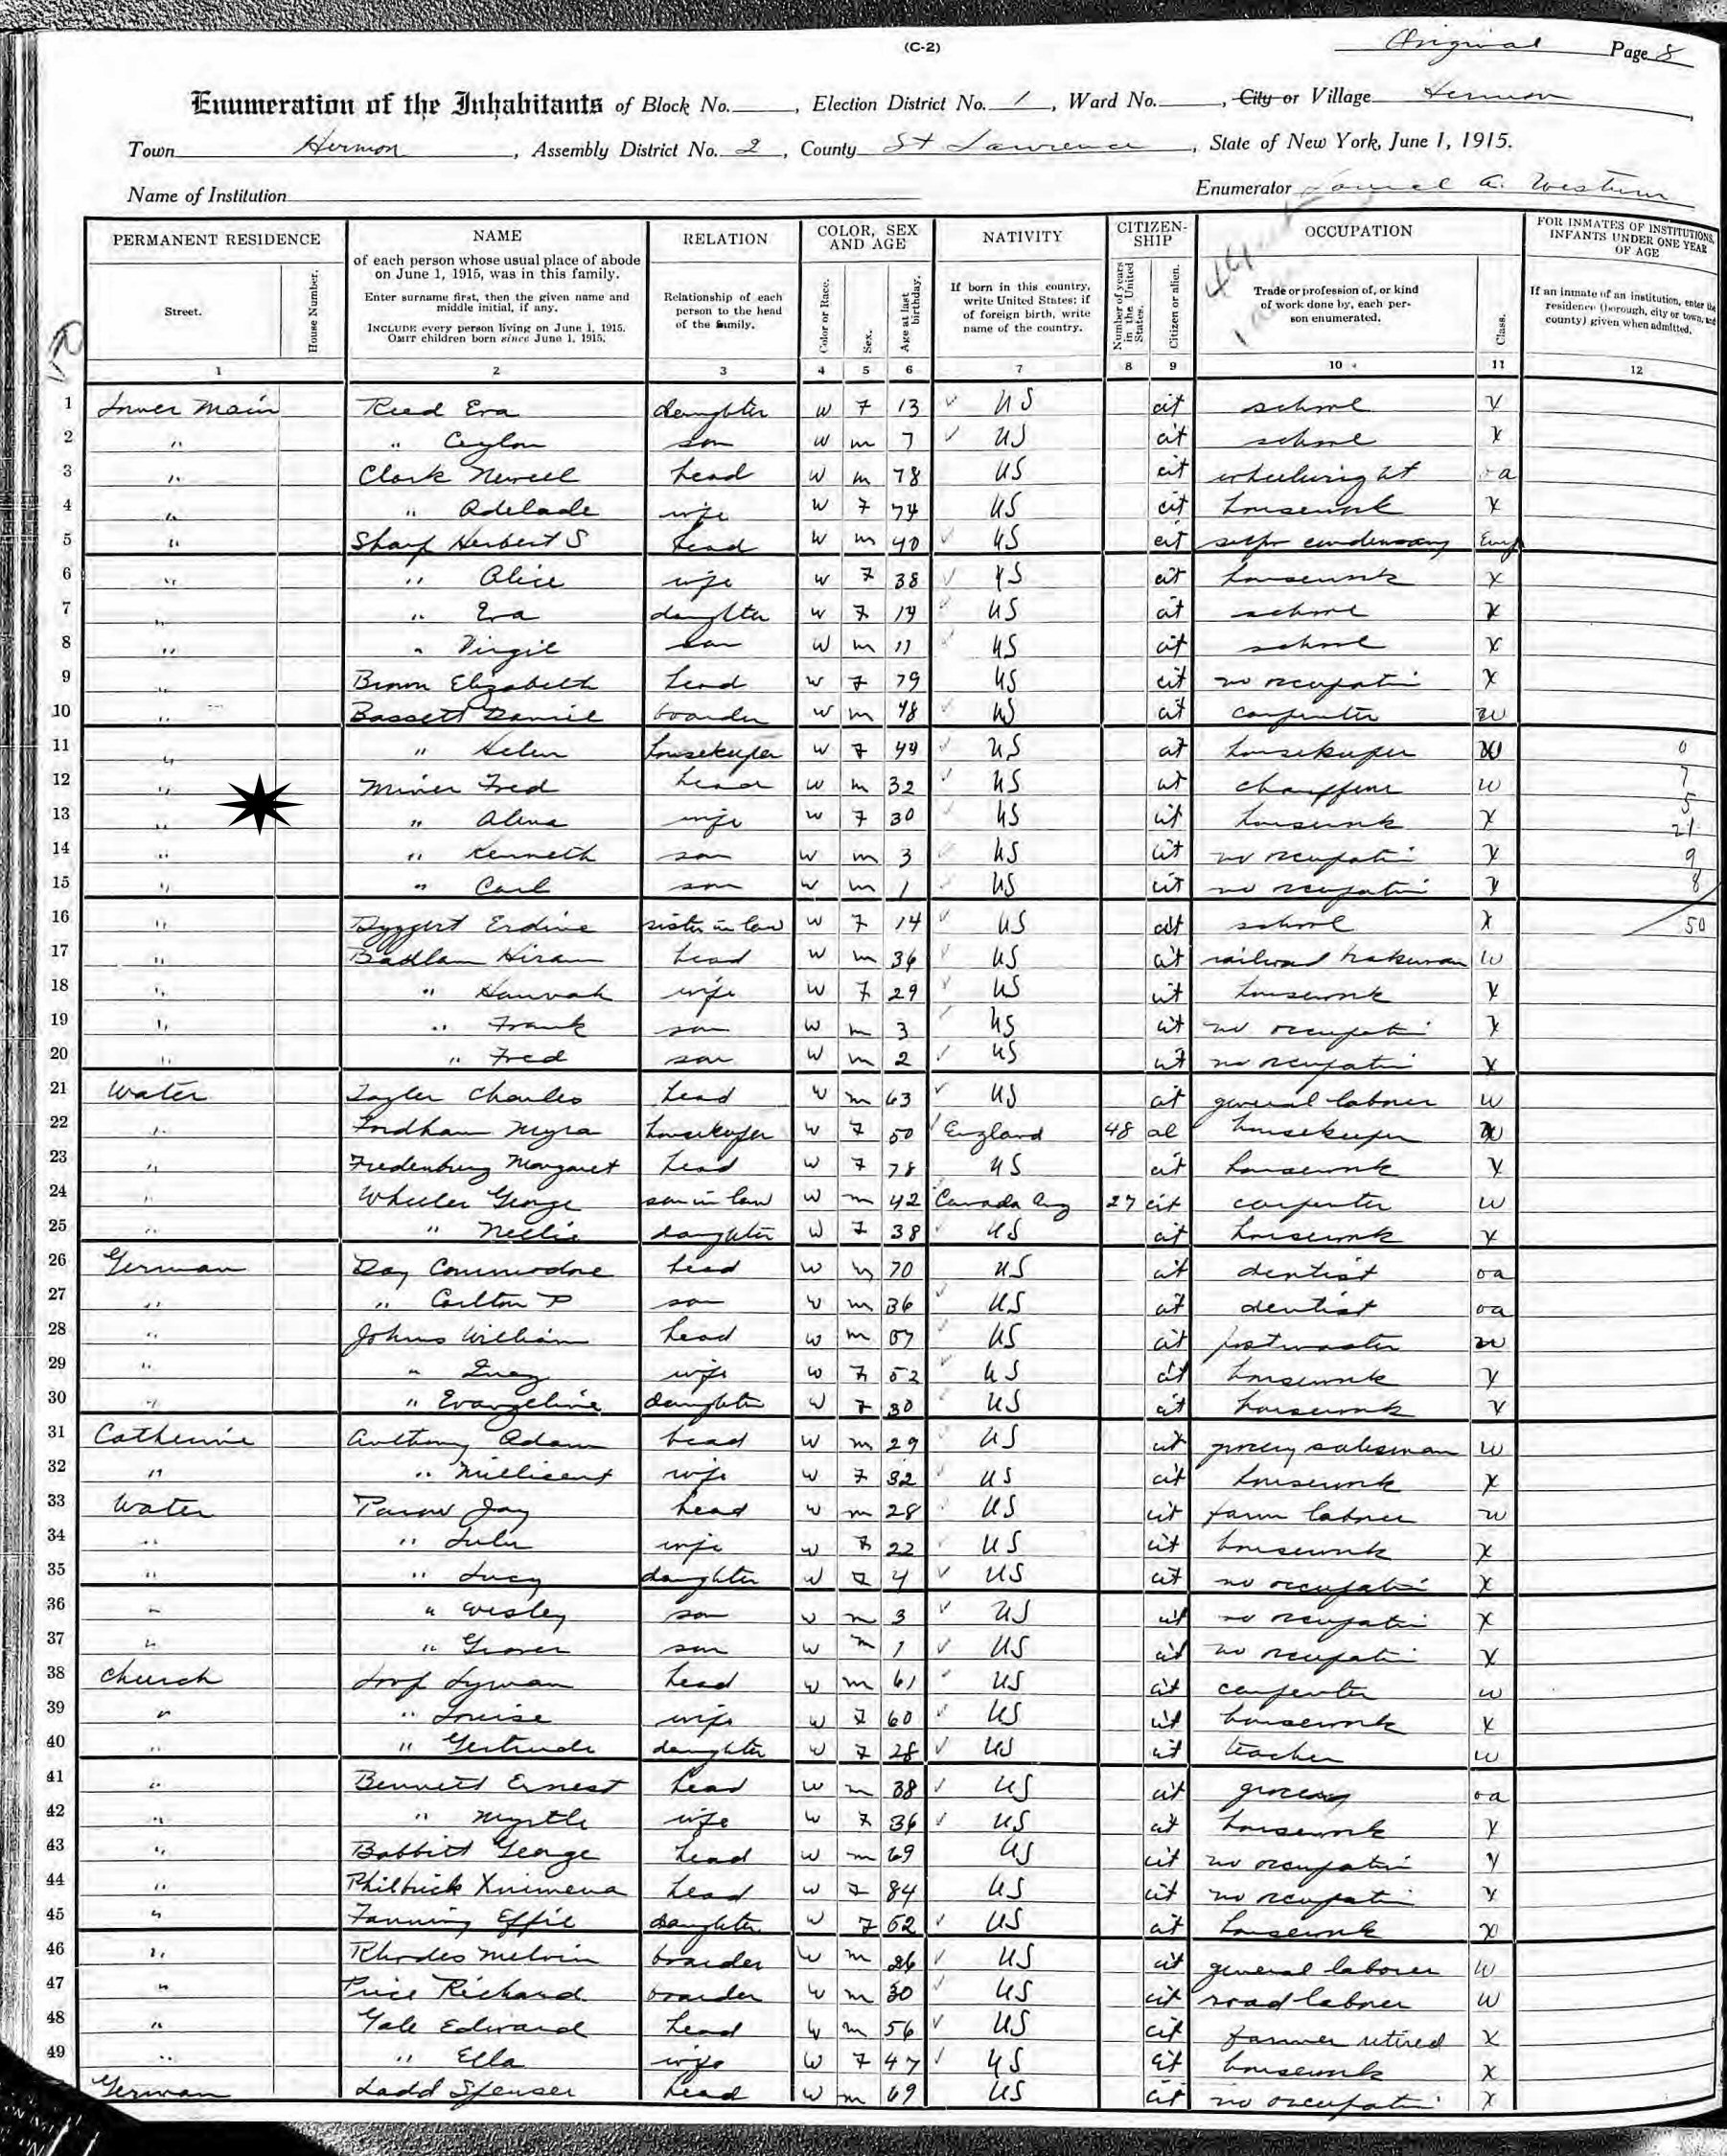 (C-2)
Original Page 8
Enumeration of the Inhabitants of Block No. , Election District No. 1 , Ward No. , City or Village Hermon
Town Hermon , Assembly District No. 2 , County St Lawrence , State of New York, June 1, 1915.
Name of Institution
Enumerator A. Western
PERMANENT RESIDENCE NAME RELATION COLOR, SEX AND AGE NATIVITY CITIZEN-SHIP OCCUPATION FOR INMATES OF INSTITUTIONS, INFANTS UNDER ONE YEAR OF AGE
Street. House Number. of each person whose usual place of abode on June 1, 1915, was in this family. Enter surname first, then the given name and middle initial, if any. INCLUDE every person living on June 1, 1915. OMIT children born since June 1, 1915. Relationship of each person to the head of the family. Color or Race. Sex. Age at last birthday. If born in this country, write United States; if of foreign birth, write name of the country. Number of years in the United States. Citizen or alien. Trade or profession of, or kind of work done by, each person enumerated. Class. If an inmate of an institution, enter the residence (borough, city or town, and county) given when admitted.
1 2 3 4 5 6 7 8 9 10 11 12
1 Main Reed Eva daughter w F 13 US cit school X
2 " " Ceylon son w m 7 US cit school X
3 " Clark Newell head w m 78 US cit wheelwright oa
4 " " Adelade wife w F 74 US cit housework X
5 " Sharp Herbert S head w m 40 US cit condensary Emp
6 " " Alice wife w F 38 US cit housework X
7 " " Eva daughter w F 14 US cit school X
8 " " Virgil son w m 11 US cit school X
9 " Brown Elizabeth head w F 79 US cit no occupation X
10 " Bassett Daniel boarder w m 48 US cit carpenter w
11 " " Helen housekeeper w F 44 US cit housekeeper w 0
12 " Miner Fred head w m 32 US cit chauffeur w 7
13 " " Alma wife w F 30 US cit housework X 5
14 " " Kenneth son w m 3 US cit no occupation X 21
15 " " Carl son w m 1 US cit no occupation X 9
8
16 " Dyggert Erdine sister in law w F 14 US cit school X 50
17 " Badlam Hiram head w m 36 US cit railroad brakeman w
18 " " Hannah wife w F 29 US cit housework X
19 " " Frank son w m 3 US cit no occupation X
20 " " Fred son w m 2 US cit no occupation X
21 Water Tayler Charles head w m 63 US cit general laborer w
22 " Fordham Myra housekeeper w F 50 England 48 al housekeeper w
23 " Fredenburg Margaret head w F 78 US cit housework X
24 " Wheeler George son in law w m 42 Canada Eng 27 cit carpenter w
25 " " Nellie daughter w F 38 US cit housework X
26 German Day Commodore head w m 70 US cit dentist oa
27 " " Carlton P son w m 36 US cit dentist oa
28 " Johns William head w m 57 US cit postmaster w
29 " " Inez wife w F 52 US cit housework X
30 " " Evangeline daughter w F 30 US cit housework X
31 Catherine Anthony Adam head w m 29 US cit grocery salesman w
32 " " Millicent wife w F 32 US cit housework X
33 Water Parow Jay head w m 28 US cit farm laborer w
34 " " Lulu wife w F 22 US cit housework X
35 " " Lucy daughter w F 4 US cit no occupation X
36 " " Wesley son w m 3 US cit no occupation X
37 " " Grover son w m 1 US cit no occupation X
38 Church Loop Lyman head w m 61 US cit carpenter w
39 " " Louise wife w F 60 US cit housework X
40 " " Gertrude daughter w F 28 US cit teacher w
41 " Bennett Ernest head w m 38 US cit grocery oa
42 " " Myrtle wife w F 36 US cit housework X
43 " Babbitt George head w m 69 US cit no occupation X
44 " Philbrick Ximena head w F 84 US cit no occupation X
45 " Fanning Effie daughter w F 52 US cit housework X
46 " Rhodes Melvin boarder w m 26 US cit general laborer w
47 " Price Richard boarder w m 30 US cit road laborer w
48 " Gale Edward head w m 56 US cit farmer retired X
49 " " Ella wife w F 47 US cit housework X
German Ladd Spenser head w m 69 US cit no occupation X